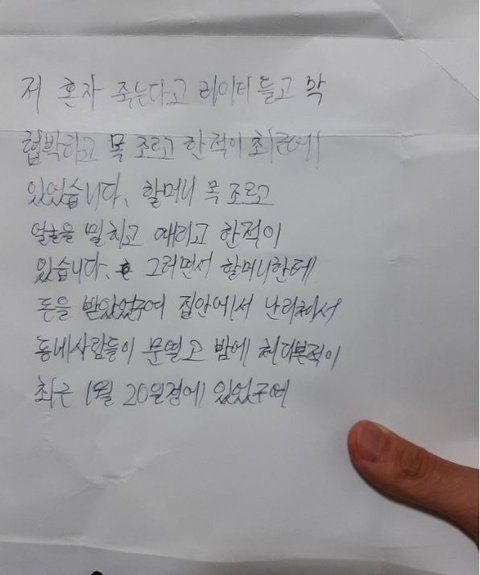 저 혼자 죽는다고 라이터 들고 막
협박하고 목 조르고 한적이 최근에
있었습니다. 할머니 목 조르고
얼굴을 밀치고 때리고 한적이
있습니다. 그러면서 할머니한테
돈을 받았었구여 집안에서 난리쳐서
동네사람들이 문열고 밤에 쳐다본적이
최근 1월 20일경에 있었구여